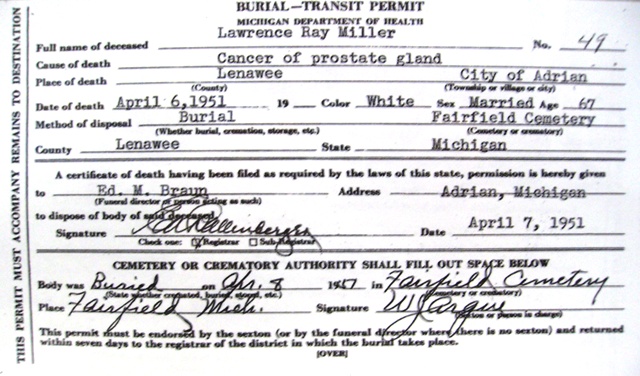 BURIAL—TRANSIT PERMIT
MICHIGAN DEPARTMENT OF HEALTH
Full name of deceased Lawrence Ray Miller No. 49
Cause of death Cancer of prostate gland
Place of death Lenawee City of Adrian
(County) (Township or village or city)
Date of death April 6,1951 19 Color White Sex Married Age 67
Method of disposal Burial Fairfield Cemetery
(Whether burial, cremation, storage, etc.) (Cemetery or crematory)
County Lenawee State Michigan
A certificate of death having been filed as required by the laws of this state, permission is hereby given
to Ed. M. Braun Address Adrian, Michigan
(Funeral director or person acting as such)
to dispose of body of said deceased.
Signature Date April 7, 1951
Check one: Registrar Sub-Registrar
CEMETERY OR CREMATORY AUTHORITY SHALL FILL OUT SPACE BELOW
Body was Buried on Apr. 8 1951 in Fairfield Cemetery
(State whether cremated, buried, stored, etc.) (Cemetery or crematory)
Place Fairfield Mich. Signature
(Sexton or person in charge)
This permit must be endorsed by the sexton (or by the funeral director where there is no sexton) and returned
within seven days to the registrar of the district in which the burial takes place.
[OVER]
THIS PERMIT MUST ACCOMPANY REMAINS TO DESTINATION